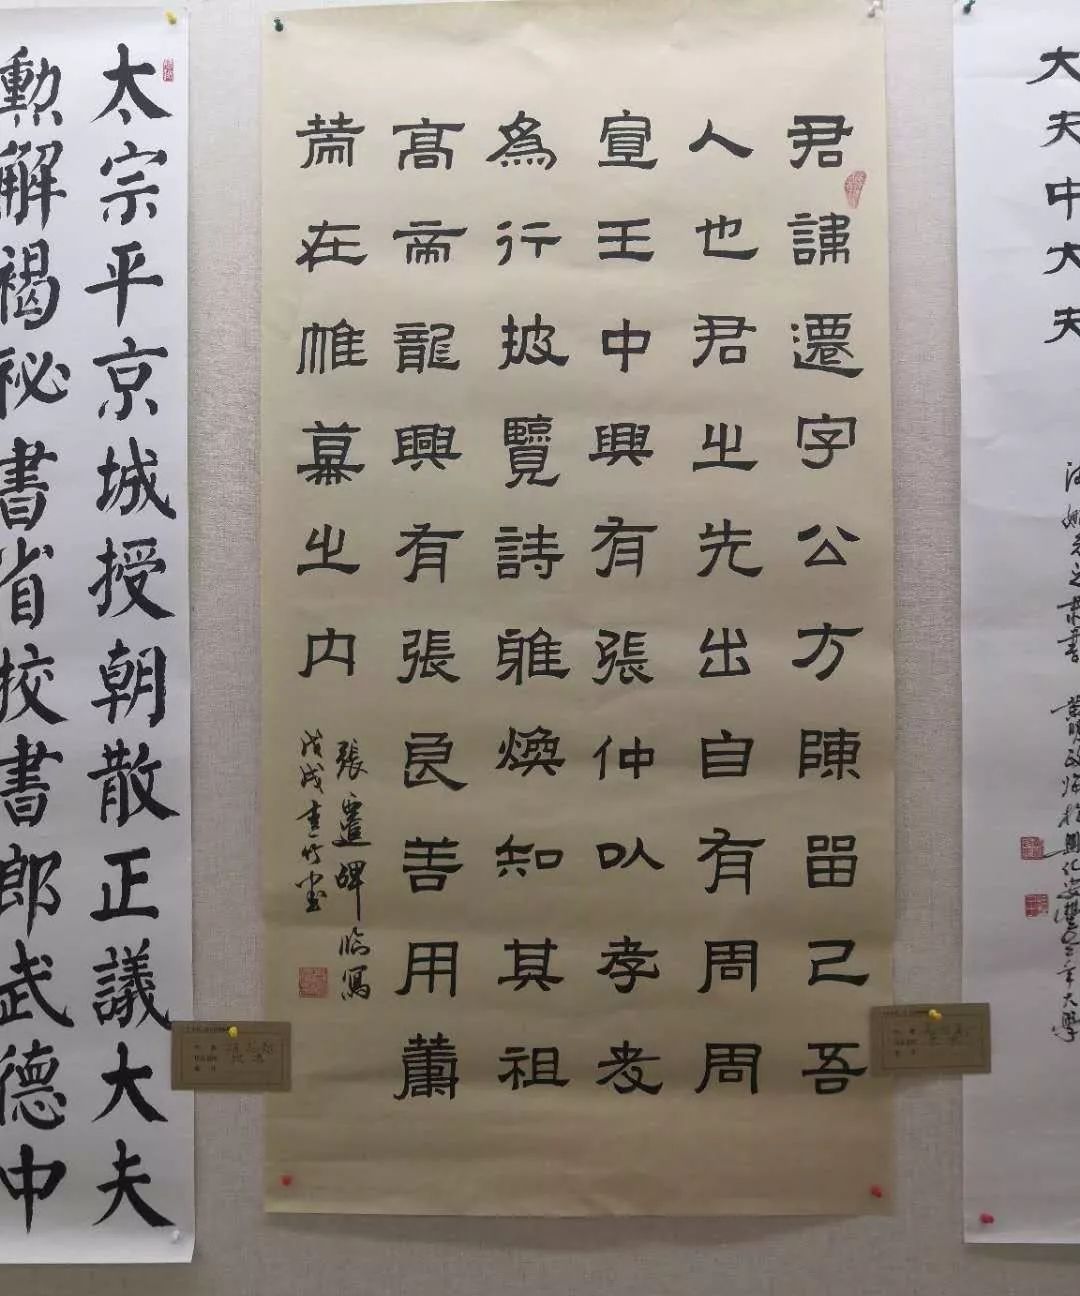 大夫中大夫
君諱遷字公方陳留己吾
人也君之先出自有周周
宣王中興有張仲以孝友
為行披覽詩雅煥知其祖
高帝龍興有張良善用籌
策在帷幕之內
張遷碑臨寫
戊戌
太宗平京城授朝散正議大夫
勳解褐祕書省校書郎武德中